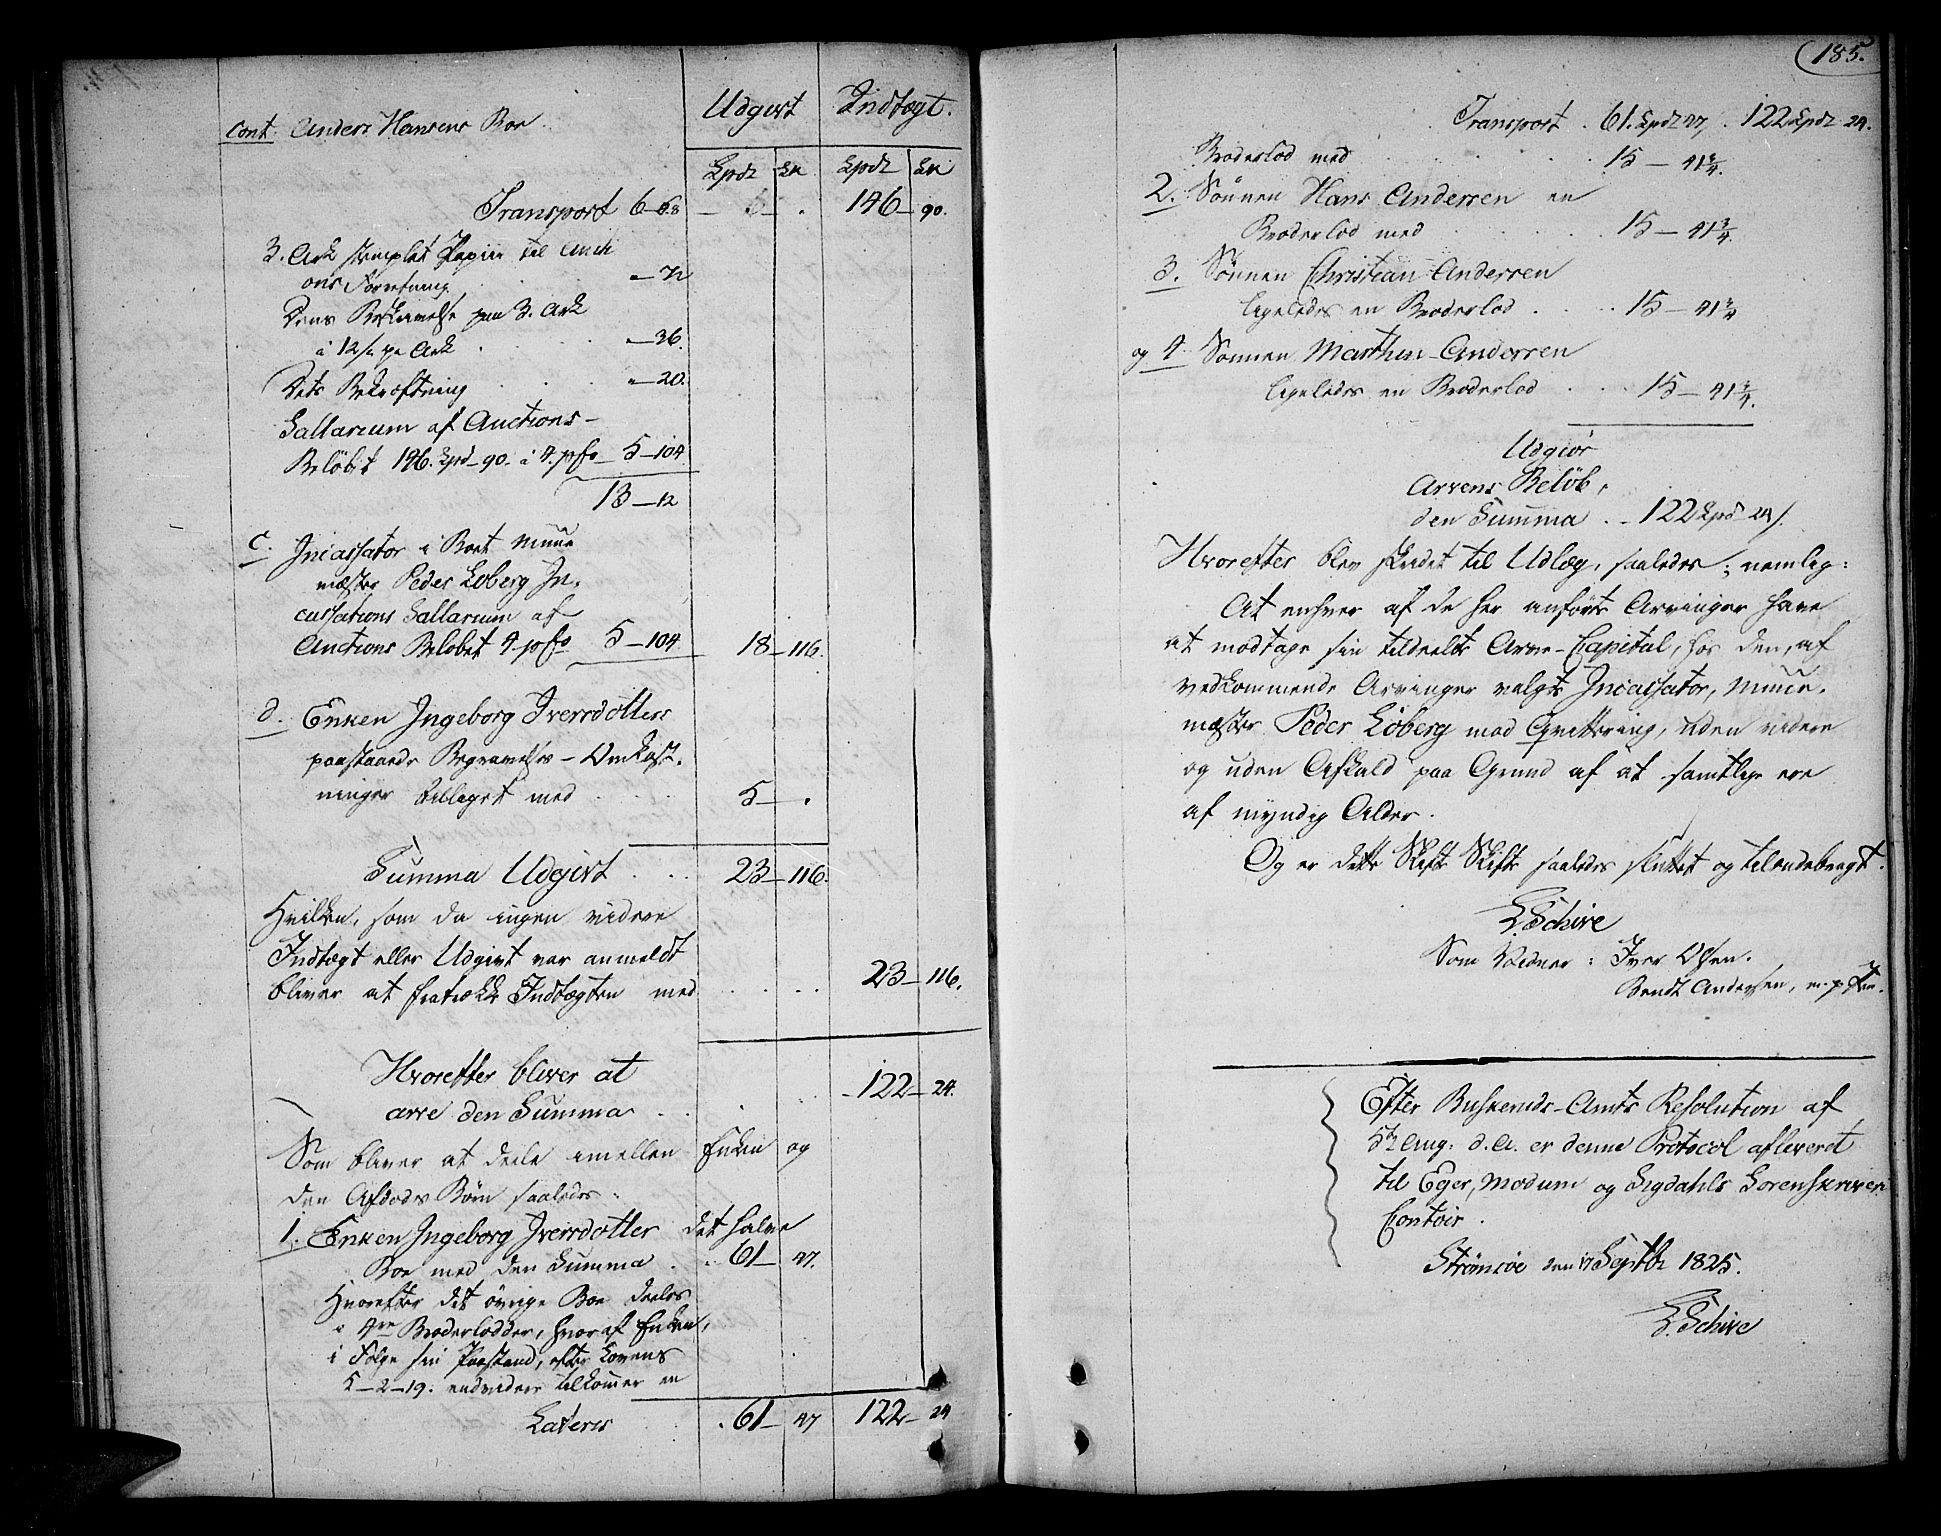 cont. Anders Hansens Boe.
Udgivt Indtægt.
Spdr Sk Spdr Sk
Transport 6-68 - 6- . 146- 90.
3. Ark stemplet Papiir til Aucti
ons Forretning . . "-72
Dens Beskrivelse paa 3. Ark
à 12 s. pr Ark . . "-36.
Dets Bekræftning . . . "-20.
Sallarium af Auctions-
Beløbet 146. Spd-90- à 4. pCto 5-104
13-12
C. Incassator i Boet Muur
mæster Peder Loberg In-
cassations Sallarium af
Auctions Beløbet 4 pCto 5-104 18-116.
d. Enken Ingeborg Iversdotters
paastaaede Begravelses-Omkost-
ninger billiget med . . . 5- .
Summa Udgivt . . . 23-116.
Hvilken, som da ingen videre
Indtægt eller Udgivt var anmeldt
bliver at fratrække Indtægten med . . . . 23-116.
Hvorefter bliver at
arve den Summa . . . . -122-24.
Som bliver at deele imellem Enken og
den Afdødes Børn saaledes:
1. Enken Ingeborg Iversdotter det halve
Boe med den Summa . . . 61- 47.
Hvorefter det øvrige Boe deeles
i 4re Broderlodder, hvoraf Enken,
i Følge sin Paastand, efter Lovens
5-2-19. endvidere tilkommer en
Lateris . 61- 47 122- 24
185.
Transport . 61. Spdr 47 . 122 Spdr 24.
Broderlod med . . . . . 15-41 3/4.
2. Sønnen Hans Andersen en
Broderlod med . . . . 15-41 3/4.
3. Sønnen Christian Andersen
ligeledes en Broderlod . . . . 15-41 3/4
og 4. Sønnen Marthin Andersen
ligeledes en Broderlod . . . 15-41 3/4.
Udgiør
Arvens Beløb,
den Summa . . 122 Spd 24 s.
Hvorefter blev skredet til Udlæg, saaledes; nemlig:
At enhver af de her anførte Arvinger have
at modtage sin tildeelte Arve-Capital, hos den, af
vedkommende Arvinger valgte Incassator, Muur-
mæster Peder Loberg mod Qvittering, uden videre
og uden Afkald paa Grund af at samtlige ere
af myndig Alder.
Og er dette Skifte Skifte saaledes sluttet og tilendebragt.
Schive
Som Vidner: Iver Olsen.
Bendt Andersen, m. p. Pen.
Efter Buskeruds-Amts Resolution af
5te Aug: d. A. er denne Protocol afleveret
til Eger, Modum og Sigdahls Sorenskriver
Contoir.
Strømsøe den 17 Septbr 1825.
Schive